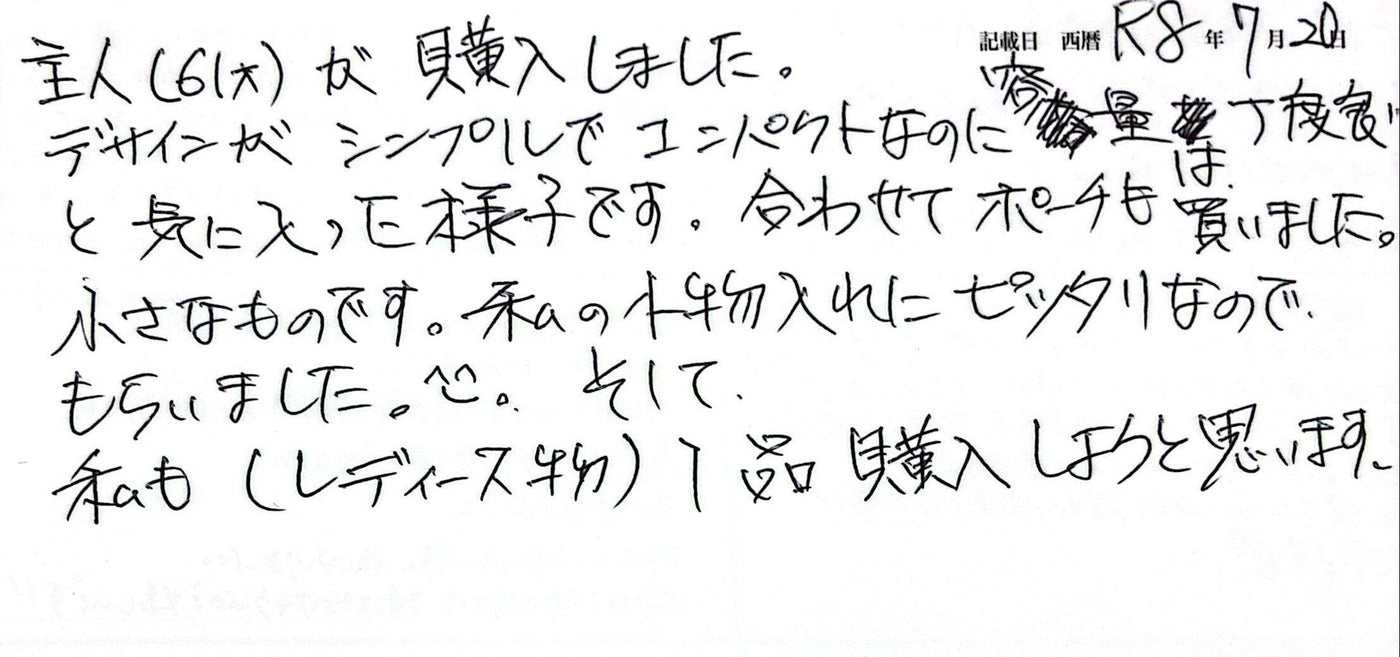 記載日 西暦 R8年7月20日
主人(61才)が購入しました。
デザインがシンプルでコンパクトなのに容量は丁度良い
と気に入った様子です。合わせてポーチも買いました。
小さなものです。私の小物入れにピッタリなので、
もらいました。^^。そして、
私も(レディース物)1品購入しようと思います。